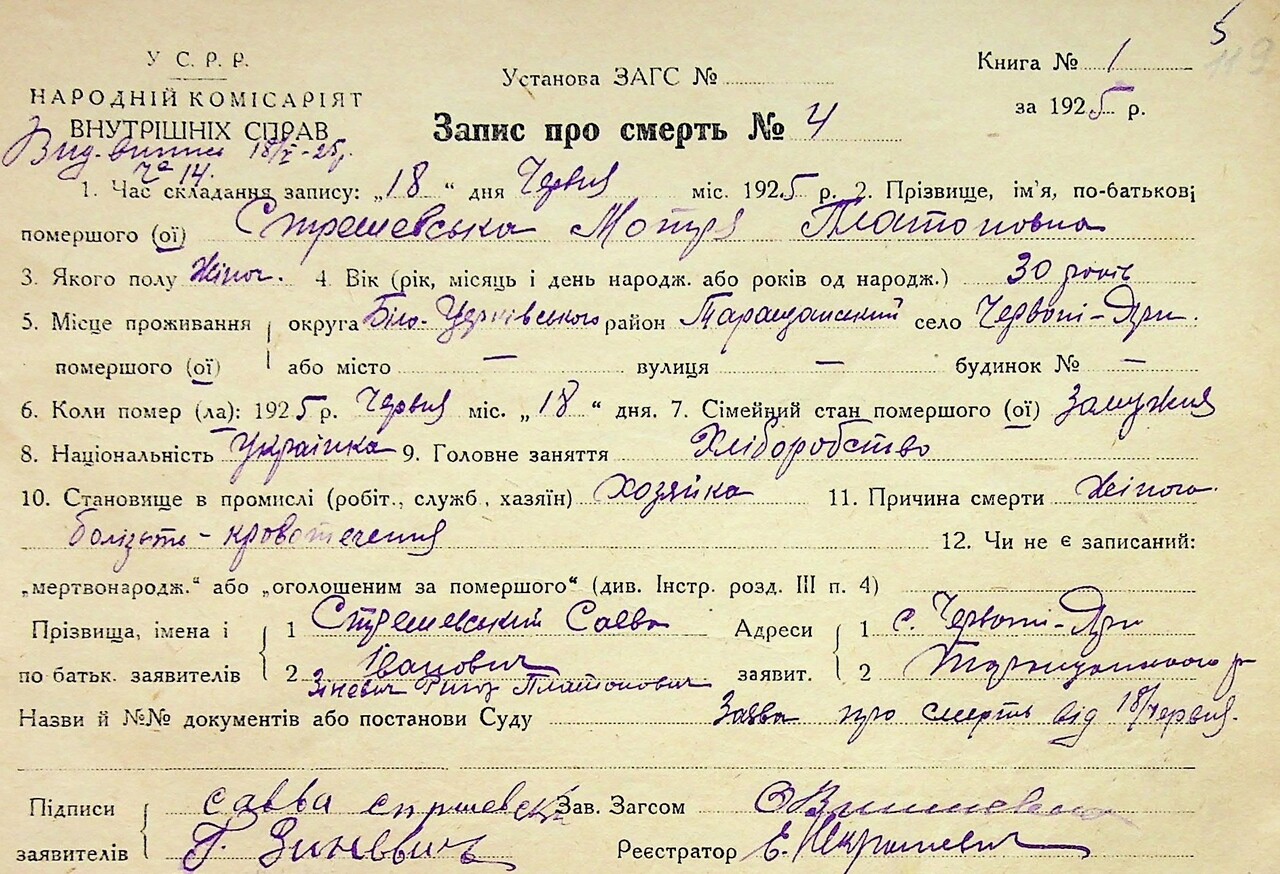 5
119
У С. Р. Р.
НАРОДНІЙ КОМІСАРІЯТ
ВНУТРІШНІХ СПРАВ
Установа ЗАГС №
Книга № 1
за 1925 р.
Запис про смерть № 4
Вид. витяг 18/VI-25р.
Ча 14.
1. Час складання запису: „18“ дня Червня міс. 1925 р. 2. Прізвище, ім'я, по-батькові
помершого (ої) Стрешевська Мотря Платоновна
3. Якого полу Жіноч. 4. Вік (рік, місяць і день народж. або років од народж.) 30 років
5. Місце проживання округа Біло-Церківського район Таращанський село Червоні-Яри.
помершого (ої) або місто — вулиця — будинок № —
6. Коли помер (ла): 1925 р. Червня міс. „18“ дня. 7. Сімейний стан помершого (ої) Замужня
8. Національність Українка 9. Головне заняття Хліборобство
10. Становище в промислі (робіт., служб, хазяїн) Хозяйка 11. Причина смерти Жіноча
болізьть - кровотечения 12. Чи не є записаний:
„мертвонародж.“ або „оголошеним за помершого“ (див. Інстр. розд. III п. 4)
Прізвища, імена і 1 Стрешевський Савва Адреси 1 с. Червоні-Яри
по батьк. заявителів 2 Іванович заявит. 2 Таращанського р
Зіневич Платонович
Назви й №№ документів або постанови Суду Заява про смерть від 18/червня.
Підписи савва Зав. Загсом
заявителів Г. Зиневич Реєстратор Е.